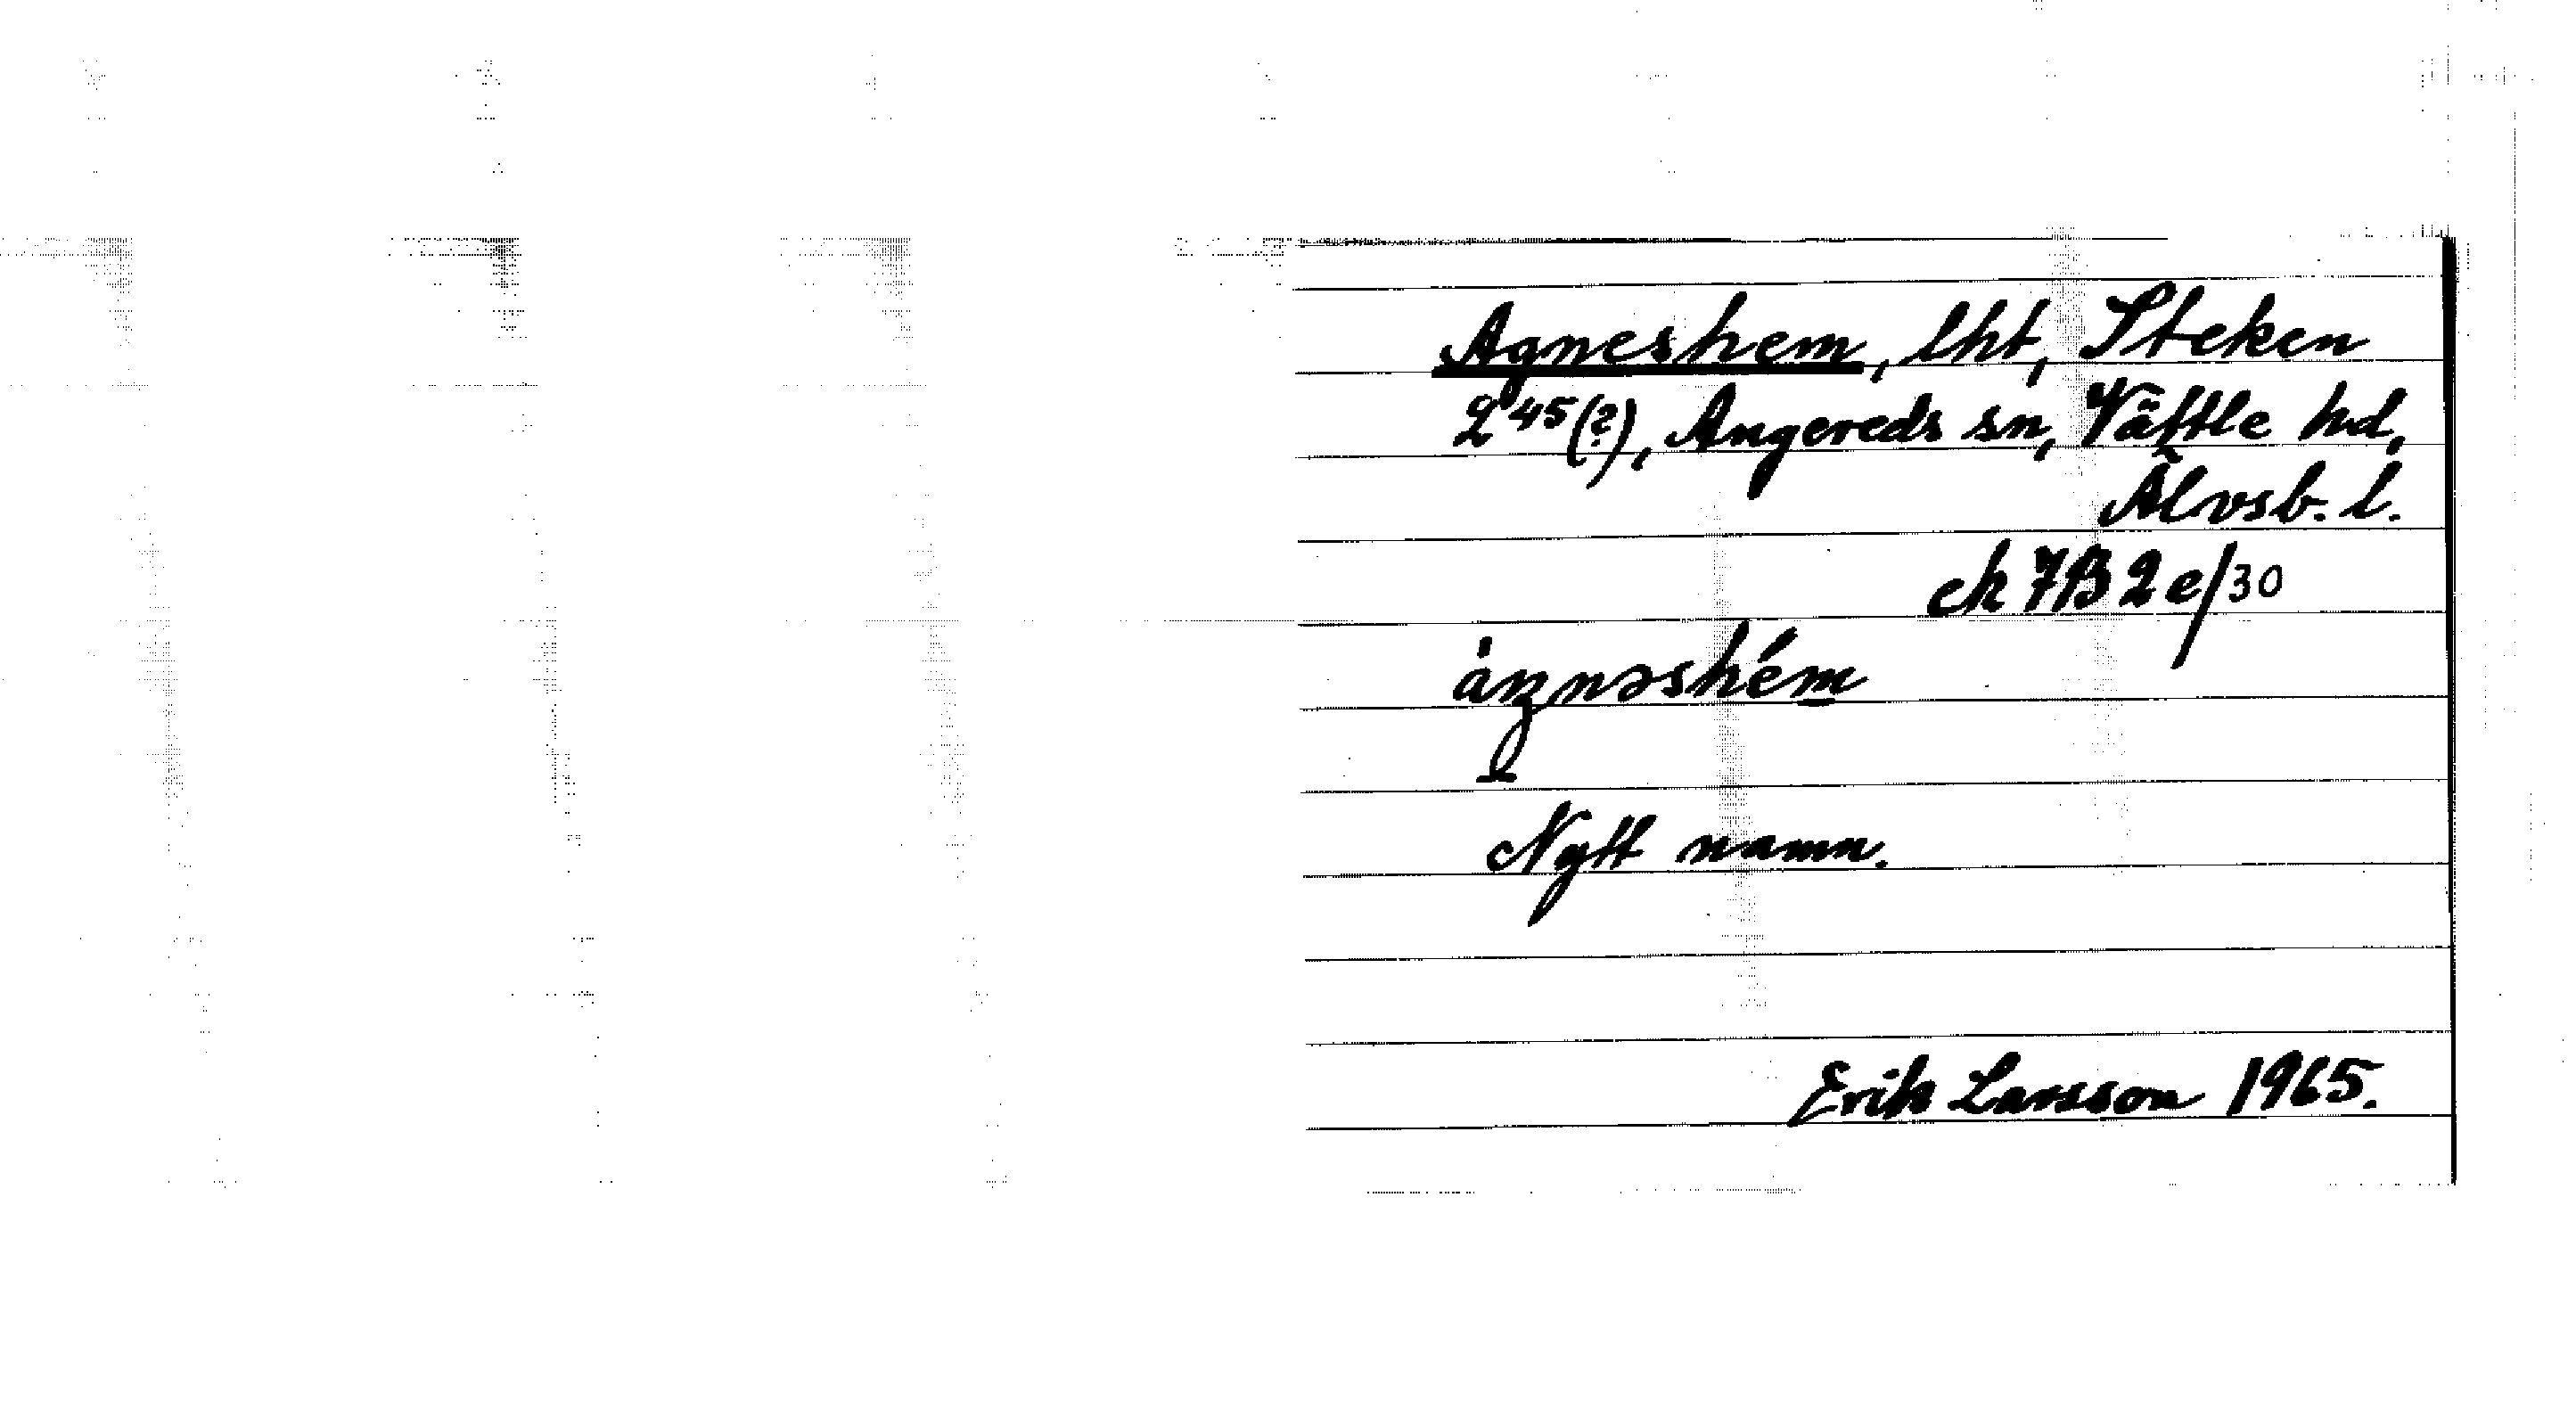 Agneshem, lht, Steken
2⁴⁵(?), Angereds sn, Vättle hd,
Älvsb. l.
ek 7B 2e/30
Nytt namn.
Erik Larsson 1965.